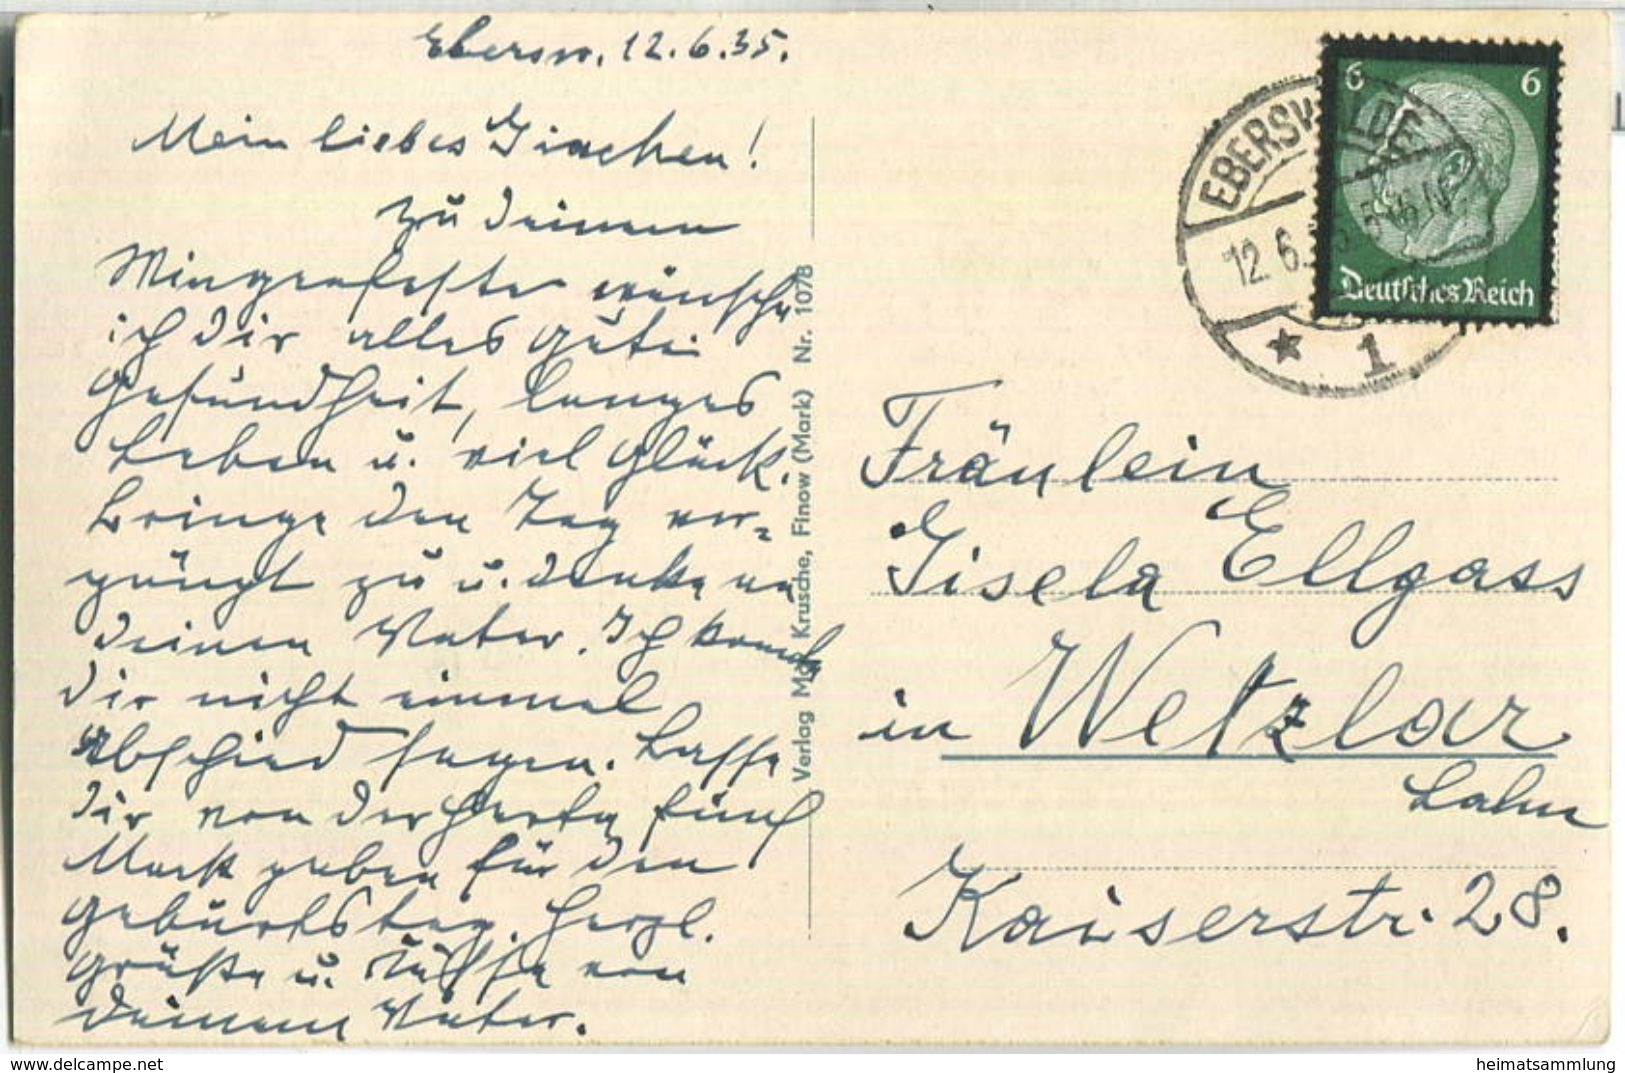 Ebersw. 12.6.35.
Mein liebes Gischen!
Zu Deinem
Wiegenfeste wünsche
ich Dir alles Gute
Gesundheit, langes
Leben u. viel Glück.
Bringe den Tag ver-
gnügt zu u. denke an
Deinen Vater. Ich konnte
Dir nicht einmal
Abschied sagen. Lasse
Dir von der Herta fünf
Mark geben für den
Geburtstag. Herzl.
Grüße u. Küsse von
Deinem Vater.
Verlag Max Krusche, Finow (Mark) Nr. 1078
EBERSWALDE
12.6.35
* 1
6 6
Deutsches Reich
Fräulein
Gisela Ellgass
in Wetzlar
Lahn
Kaiserstr. 28.
www.delcampe.net
heimatsammlung